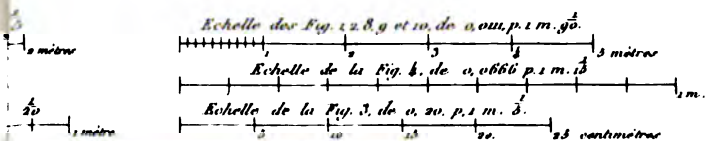 Echelle des Fig. 1. 2. 8. 9 et 10, de 0,0111, p. 1 m. 1/90.
2 mètres
1 2 3 4 5 mètres
Echelle de la Fig. 4, de 0,0666 p. 1 m. 1/15
1 m.
Echelle de la Fig. 3, de 0, 20. p. 1 m. 1/5.
1/20
1 mètre
5 10 15 20. 25 centimètres